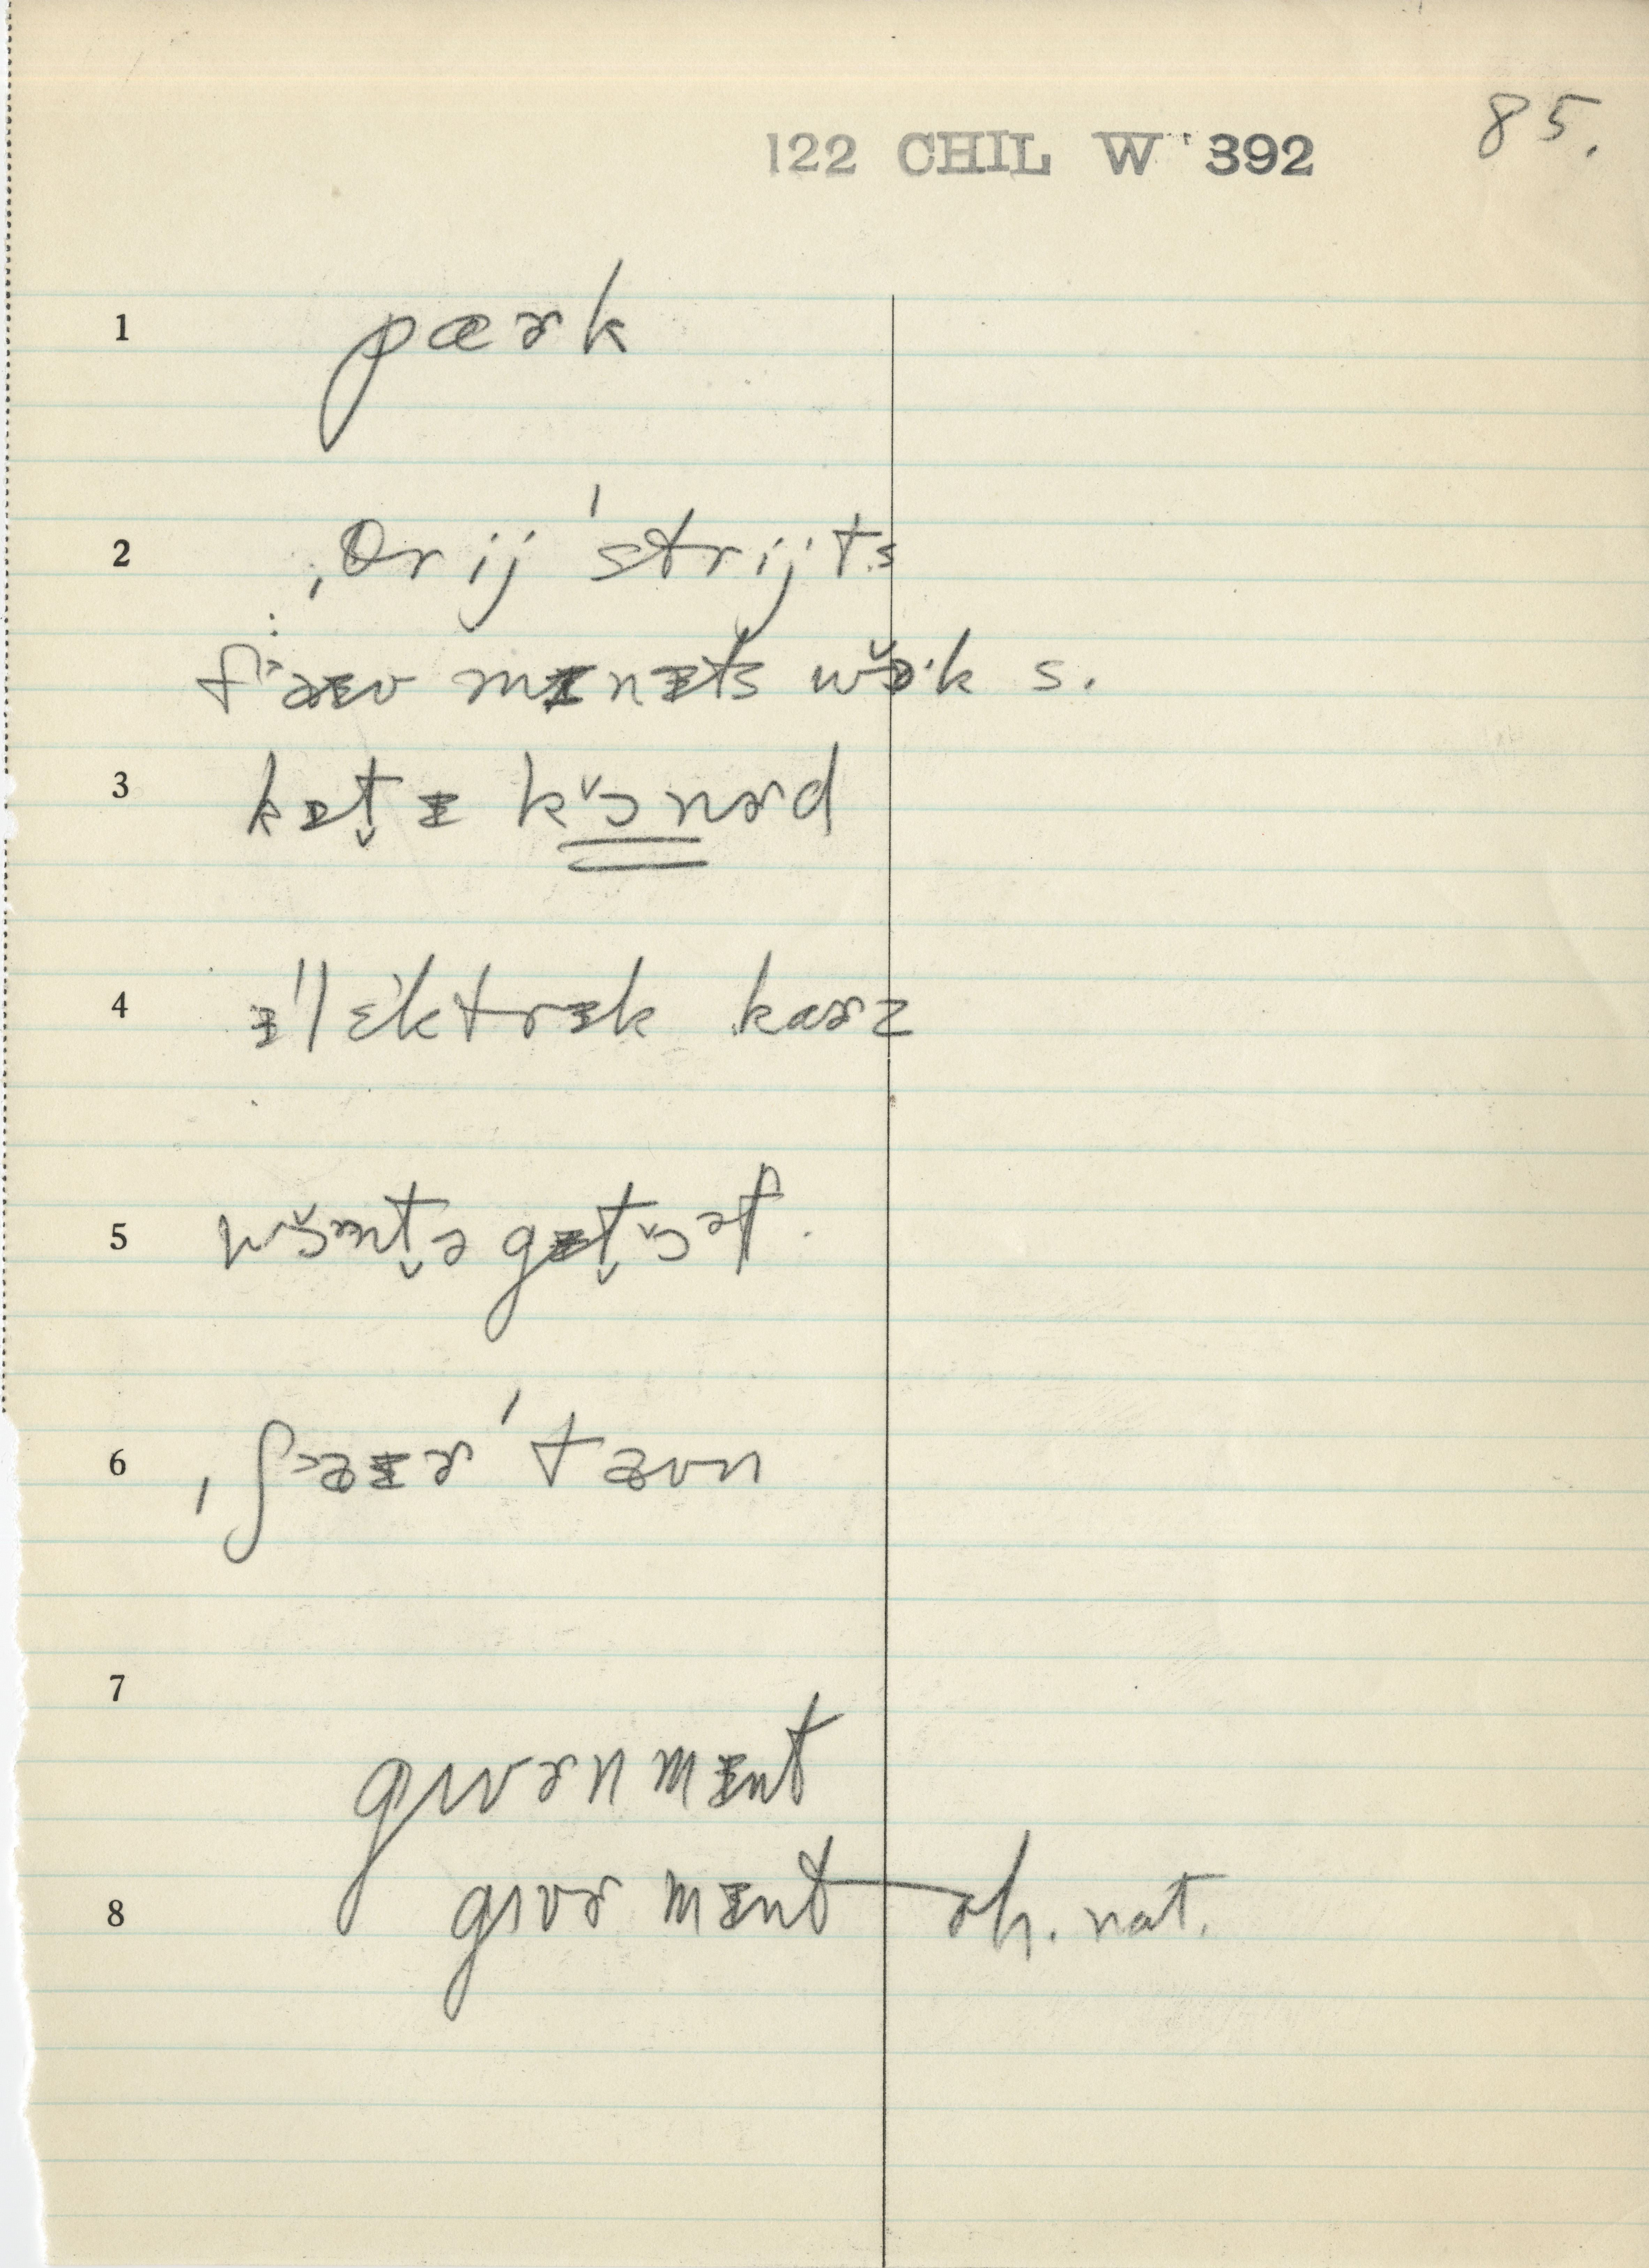 122 CHIL W 392
85.
1 pæɚk
2 ˌθrij ˈstrijts
faᵻv mᵻnᵻts wɔ̌·k s.
3 kᵻt̬ ᵻ kɔ̌nɚd
4 ᵻˈlɛktrᵻk kaɚz
5 wɔ̌nt̬ə gᵻt̬ɔ̌əf.
6 ˌfaᵻɚ ˈtaʊn
7
gʌvɚnmᵻnt
8 gʌvɚmᵻnt — oh. nat.